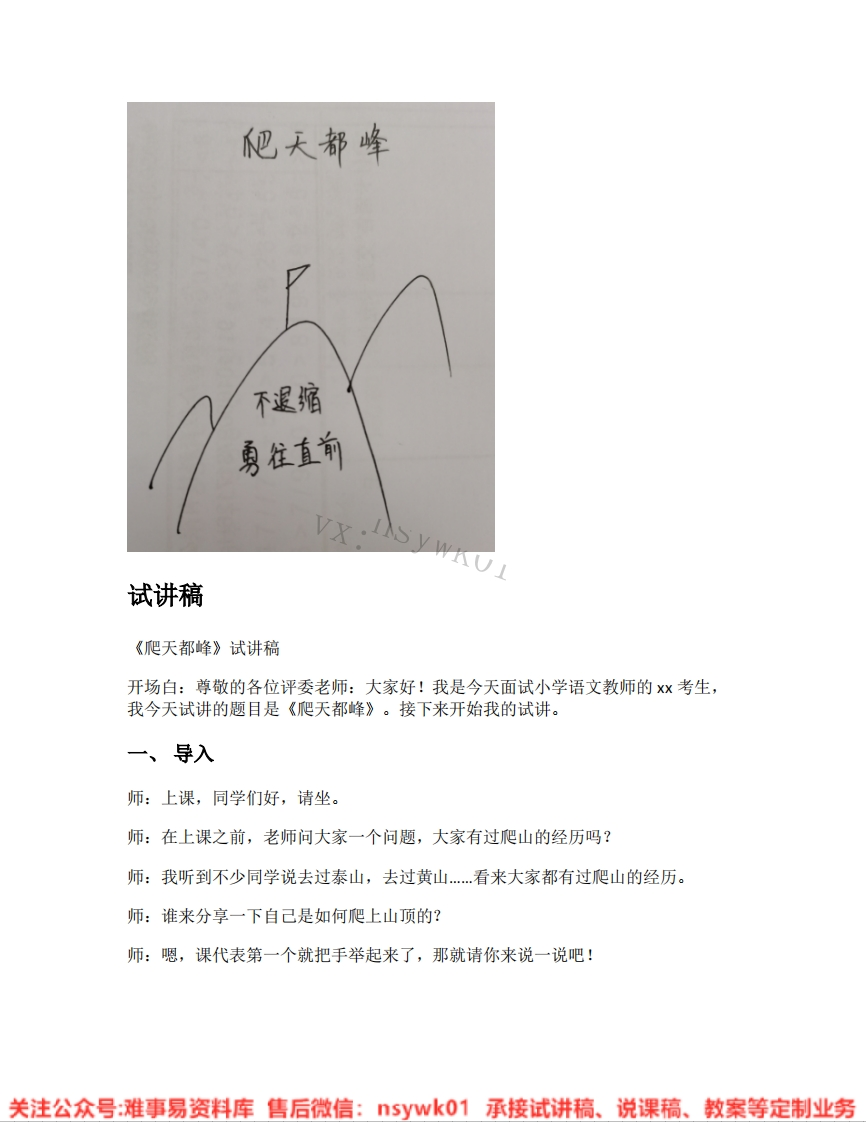 爬天都峰
不退缩
勇往直前
vx:nsywk01
试讲稿
《爬天都峰》试讲稿
开场白：尊敬的各位评委老师：大家好！我是今天面试小学语文教师的 xx 考生，
我今天试讲的题目是《爬天都峰》。接下来开始我的试讲。
一、 导入
师：上课，同学们好，请坐。
师：在上课之前，老师问大家一个问题，大家有过爬山的经历吗？
师：我听到不少同学说去过泰山，去过黄山……看来大家都有过爬山的经历。
师：谁来分享一下自己是如何爬上山顶的？
师：嗯，课代表第一个就把手举起来了，那就请你来说一说吧！
关注公众号:难事易资料库 售后微信：nsywk01 承接试讲稿、说课稿、教案等定制业务